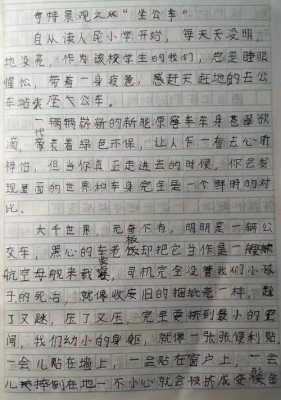 奇特景观之双“坐公车”
自从读人民小学开始，每天天没明
地没亮，作为该校学生的我们，总是睡眼
惺忪，带着一身疲惫，感赶天赶地的去公
车站乘座气公车。
一辆辆崭新的新能原客车车身喜喜欲
滴，带代表着绿色环保，让人乍一看去心旷
神怡，但当你真正走进去的时候，你会发
现里面的世界和车身完全是一个鲜明的对
比。
大千世界，无奇不有，明明是一辆公
交车，黑心的车老板却把它当作是一艘
航空母舰来载客，司机完全没管我们小孩
子的死活，就像收废旧的捆纸壳一样，踩
了又踩，压了又压，完全要挤到最小的空
间，我们幼小的身躯，就像一张张便利贴，
一会儿贴在墙上，一会贴在窗户上，一会
儿摔倒在地一不小心就会被挤成